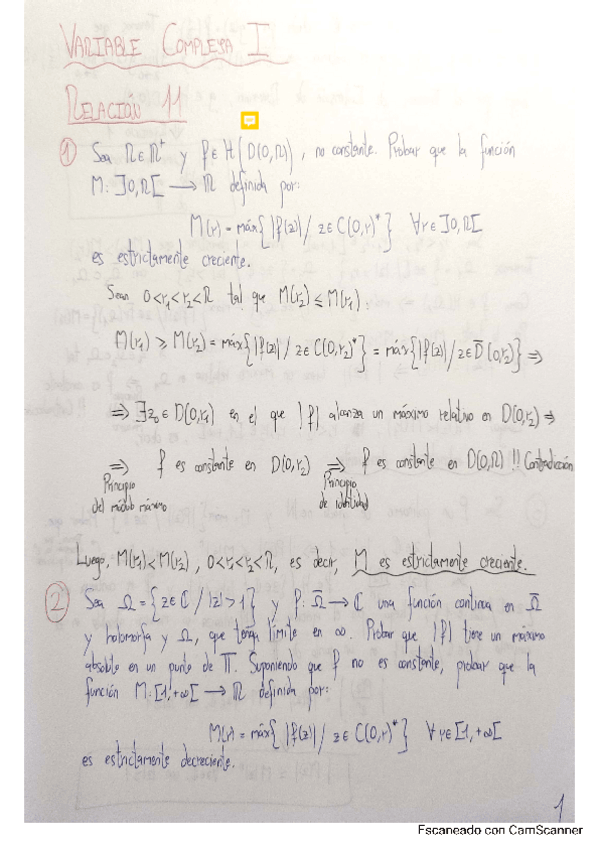 VARIABLE COMPLEJA I
RELACIÓN 11
① Sea R∈ℝ⁺ y f∈H(D(0,R)), no constante. Probar que la función
M: ]0,R[ → ℝ definida por:
M(r) = máx{|f(z)| / z∈C(0,r)*} ∀r∈]0,R[
es estrictamente creciente.
Sean 0<r₁<r₂<R tal que M(r₂) ≤ M(r₁):
M(r₁) ≥ M(r₂) = máx{|f(z)| / z∈C(0,r₂)*} = máx{|f(z)| / z∈D̄(0,r₂)} ⇒
⇒ ∃z₀∈D(0,r₂) en el que |f| alcanza un máximo relativo en D(0,r₂) ⇒
⇒ f es constante en D(0,r₂) ⇒ f es constante en D(0,R) !! Contradicción
Principio del módulo máximo
Principio de identidad
Luego, M(r₁)<M(r₂), 0<r₁<r₂<R, es decir, M es estrictamente creciente.
② Sea Ω = {z∈ℂ / |z|>1} y f: Ω̄ → ℂ una función continua en Ω̄
y holomorfa y Ω, que tenga límite en ∞. Probar que |f| tiene un máximo
absoluto en un punto de 𝕋. Suponiendo que f no es constante, probar que la
función M: [1,+∞[ → ℝ definida por:
M(r) = máx{|f(z)| / z∈C(0,r)*} ∀r∈[1,+∞[
es estrictamente decreciente.
1
Escaneado con CamScanner